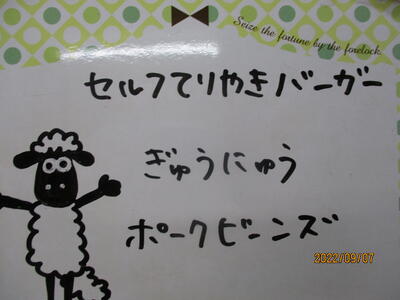 Seize the fortune by the forelock.
セルフてりやきバーガー
ぎゅうにゅう
ポークビーンズ
2022/09/07